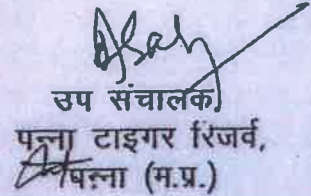 उप संचालक
पन्ना टाइगर रिजर्व,
पन्ना (म.प्र.)